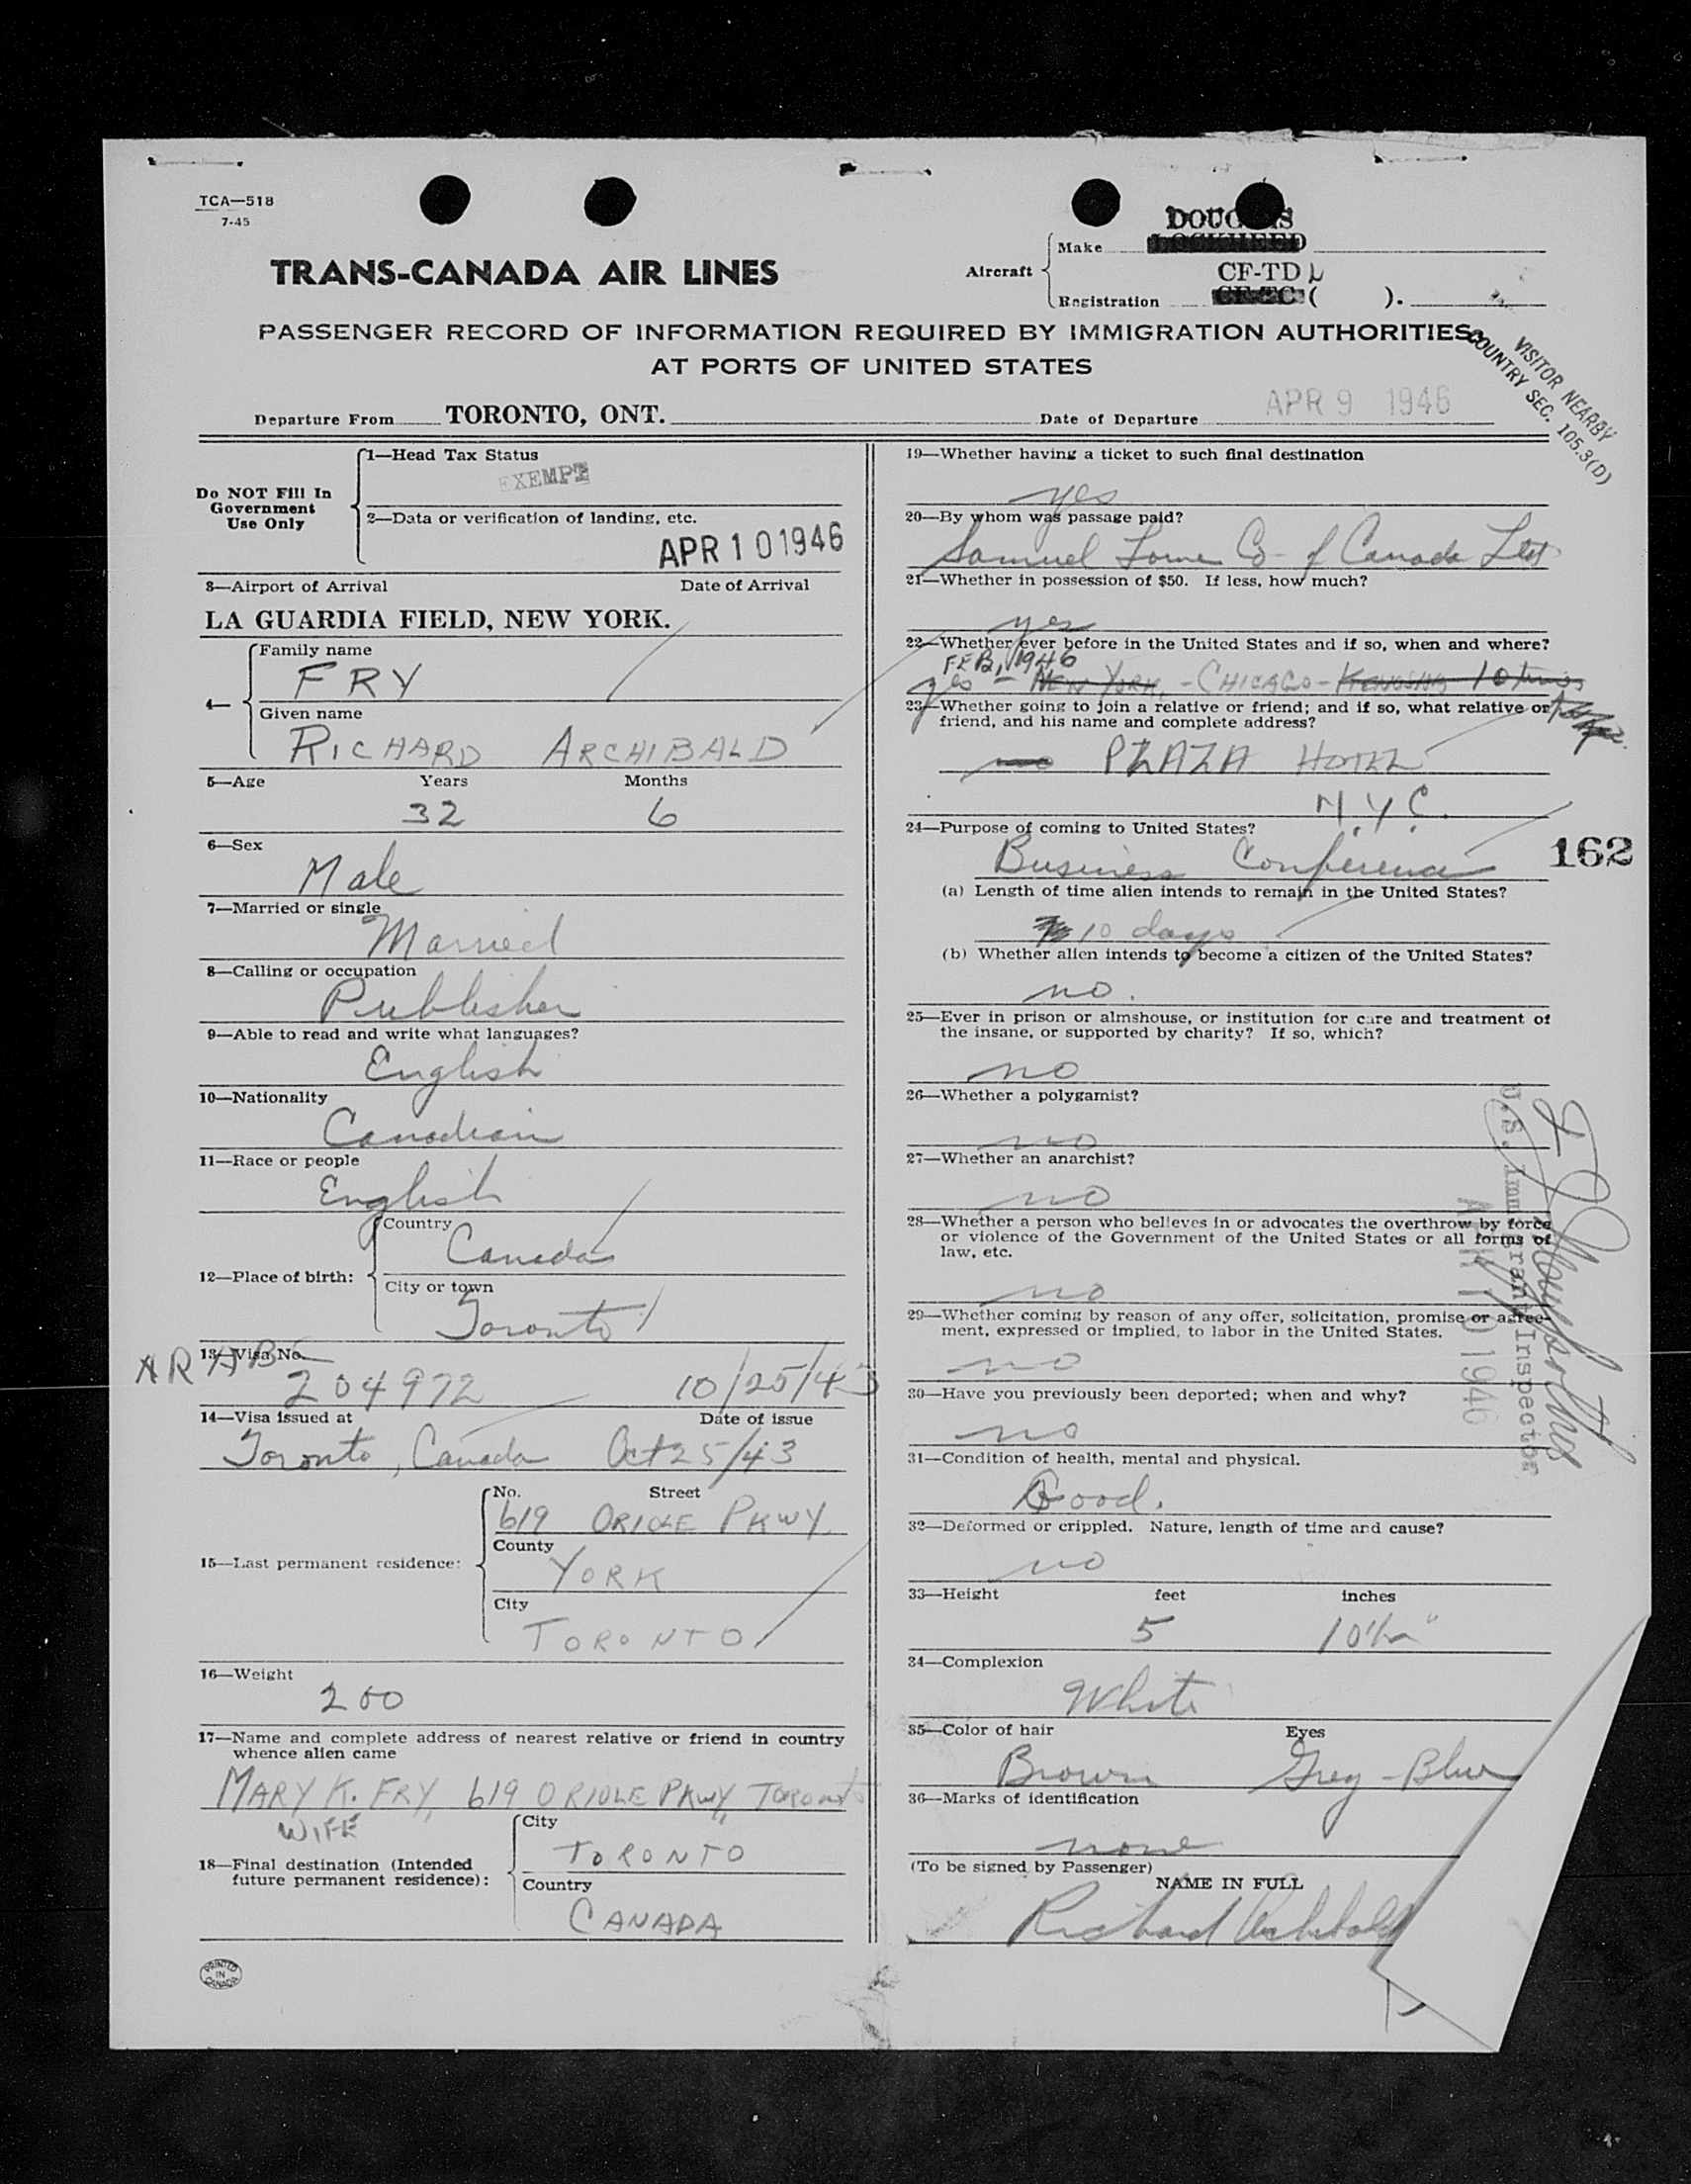 TCA—518
7-45
DOUGLAS
Make LOCKHEED
TRANS-CANADA AIR LINES
Aircraft
CF-TD L
Registration CF-TC ( ).
PASSENGER RECORD OF INFORMATION REQUIRED BY IMMIGRATION AUTHORITIES
AT PORTS OF UNITED STATES
VISITOR NEARBY
COUNTRY SEC. 105.3(D)
Departure From TORONTO, ONT. Date of Departure APR 9 1946
Do NOT Fill In
Government
Use Only
1—Head Tax Status
EXEMPT
2—Data or verification of landing, etc.
APR 10 1946
3—Airport of Arrival Date of Arrival
LA GUARDIA FIELD, NEW YORK.
4—
Family name
FRY
Given name
RICHARD ARCHIBALD
5—Age Years Months
32 6
6—Sex
Male
7—Married or single
Married
8—Calling or occupation
Publisher
9—Able to read and write what languages?
English
10—Nationality
Canadian
11—Race or people
English
12—Place of birth:
Country
Canada
City or town
Toronto
13—Visa No.
204972 10/25/43
14—Visa issued at Date of issue
Toronto, Canada Oct 25/43
15—Last permanent residence:
No. Street
619 ORIOLE PKWY.
County
YORK
City
TORONTO
16—Weight
200
17—Name and complete address of nearest relative or friend in country
whence alien came
MARY K. FRY, 619 ORIOLE PKWY, TORONTO
WIFE
18—Final destination (Intended
future permanent residence):
City
TORONTO
Country
CANADA
PRINTED
IN
CANADA
19—Whether having a ticket to such final destination
yes
20—By whom was passage paid?
Samuel Lowe Co of Canada Ltd
21—Whether in possession of $50. If less, how much?
yes
22—Whether ever before in the United States and if so, when and where?
FEB, 1946
yes – NEW YORK, - CHICAGO - KENOSHA 10 times
23—Whether going to join a relative or friend; and if so, what relative or
friend, and his name and complete address?
no PLAZA HOTEL
N.Y.C.
24—Purpose of coming to United States?
Business Conference
162
(a) Length of time alien intends to remain in the United States?
10 days
(b) Whether alien intends to become a citizen of the United States?
no.
25—Ever in prison or almshouse, or institution for care and treatment of
the insane, or supported by charity? If so, which?
no
26—Whether a polygamist?
no
27—Whether an anarchist?
no
28—Whether a person who believes in or advocates the overthrow by force
or violence of the Government of the United States or all forms of
law, etc.
no
29—Whether coming by reason of any offer, solicitation, promise or agree-
ment, expressed or implied, to labor in the United States.
no
30—Have you previously been deported; when and why?
no
U.S. Immigrant Inspector
APR 10 1946
31—Condition of health, mental and physical.
Good.
32—Deformed or crippled. Nature, length of time and cause?
no
33—Height feet inches
5 10½"
34—Complexion
White
35—Color of hair Eyes
Brown Grey-Blue
36—Marks of identification
none
(To be signed by Passenger)
NAME IN FULL
Richard Archibald